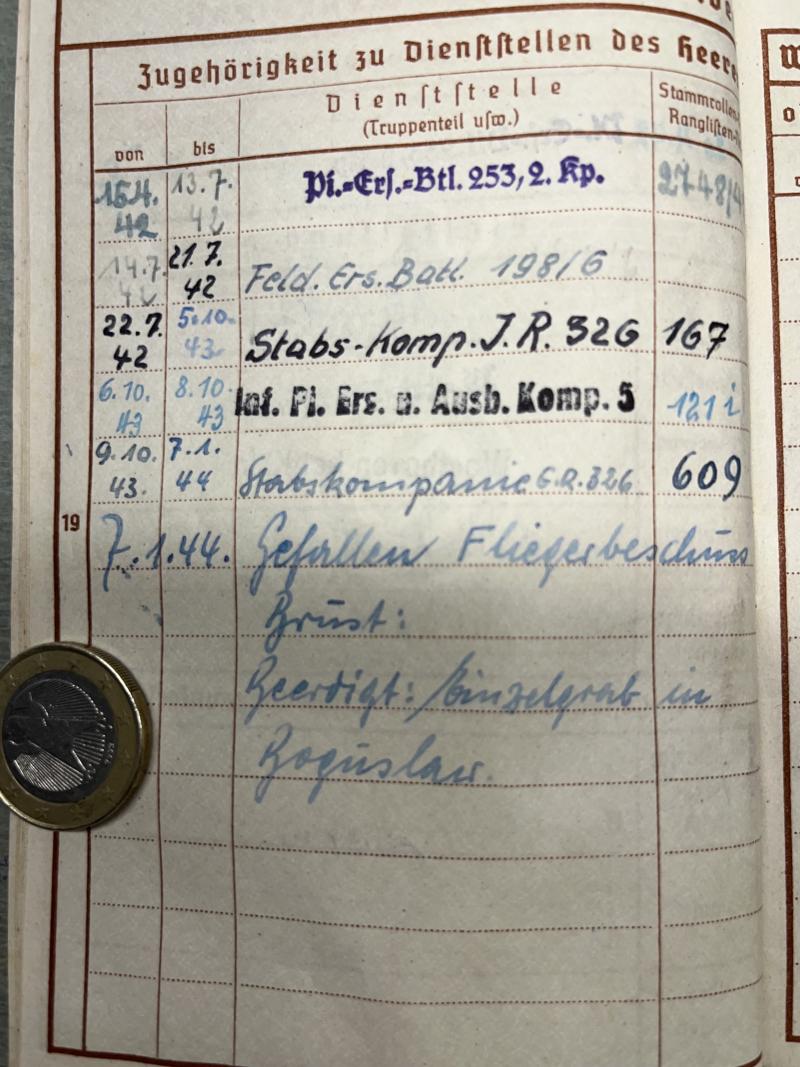 Zugehörigkeit zu Dienststellen des Heere
von bis Dienststelle Stammrollen-
(Truppenteil usw.) Ranglisten-
16.4. 42 13.7. 42 Pi.=Ers.=Btl. 253, 2. Kp. 2748/4
14.7. 42 21.7. 42 Feld. Ers. Batl. 198/6
22.7. 42 5.10. 43 Stabs-Komp. J.R. 326 167
6.10. 43 8.10. 43 Inf. Pi. Ers. u. Ausb. Komp. 5 121 i
9.10. 43. 7.1. 44 Stabskompanie G.R. 326 609
19 7.1.44. Gefallen Fliegerbeschuss
Brust:
Beerdigt: Einzelgrab in
Boguslaw.